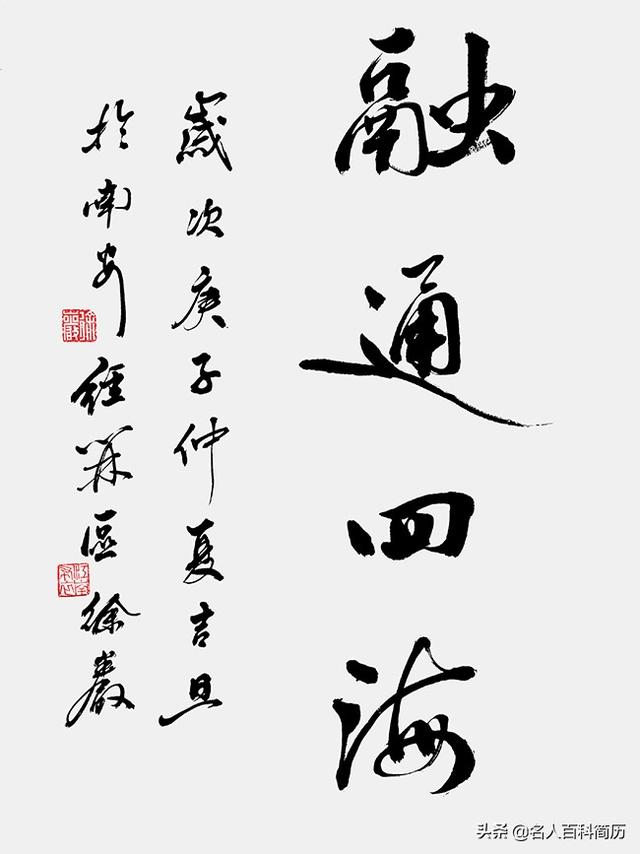 融通四海
歲次庚子仲夏吉旦
於南安經開區徐嚴
头条 @名人百科简历